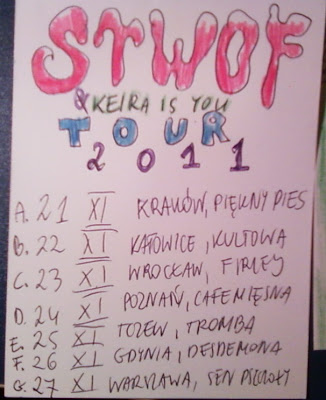 STWOF
& KEIRA IS YOU
TOUR
2011
A. 21 XI KRAKÓW, PIĘKNY PIES
B. 22 XI KATOWICE, KULTOWA
C. 23 XI WROCŁAW, FIRLEY
D. 24 XI POZNAŃ, CAFE MIĘSNA
E. 25 XI TCZEW, TROMBA
F. 26 XI GDYNIA, DESDEMONA
G. 27 XI WARSZAWA, SEN PSZCZOŁY